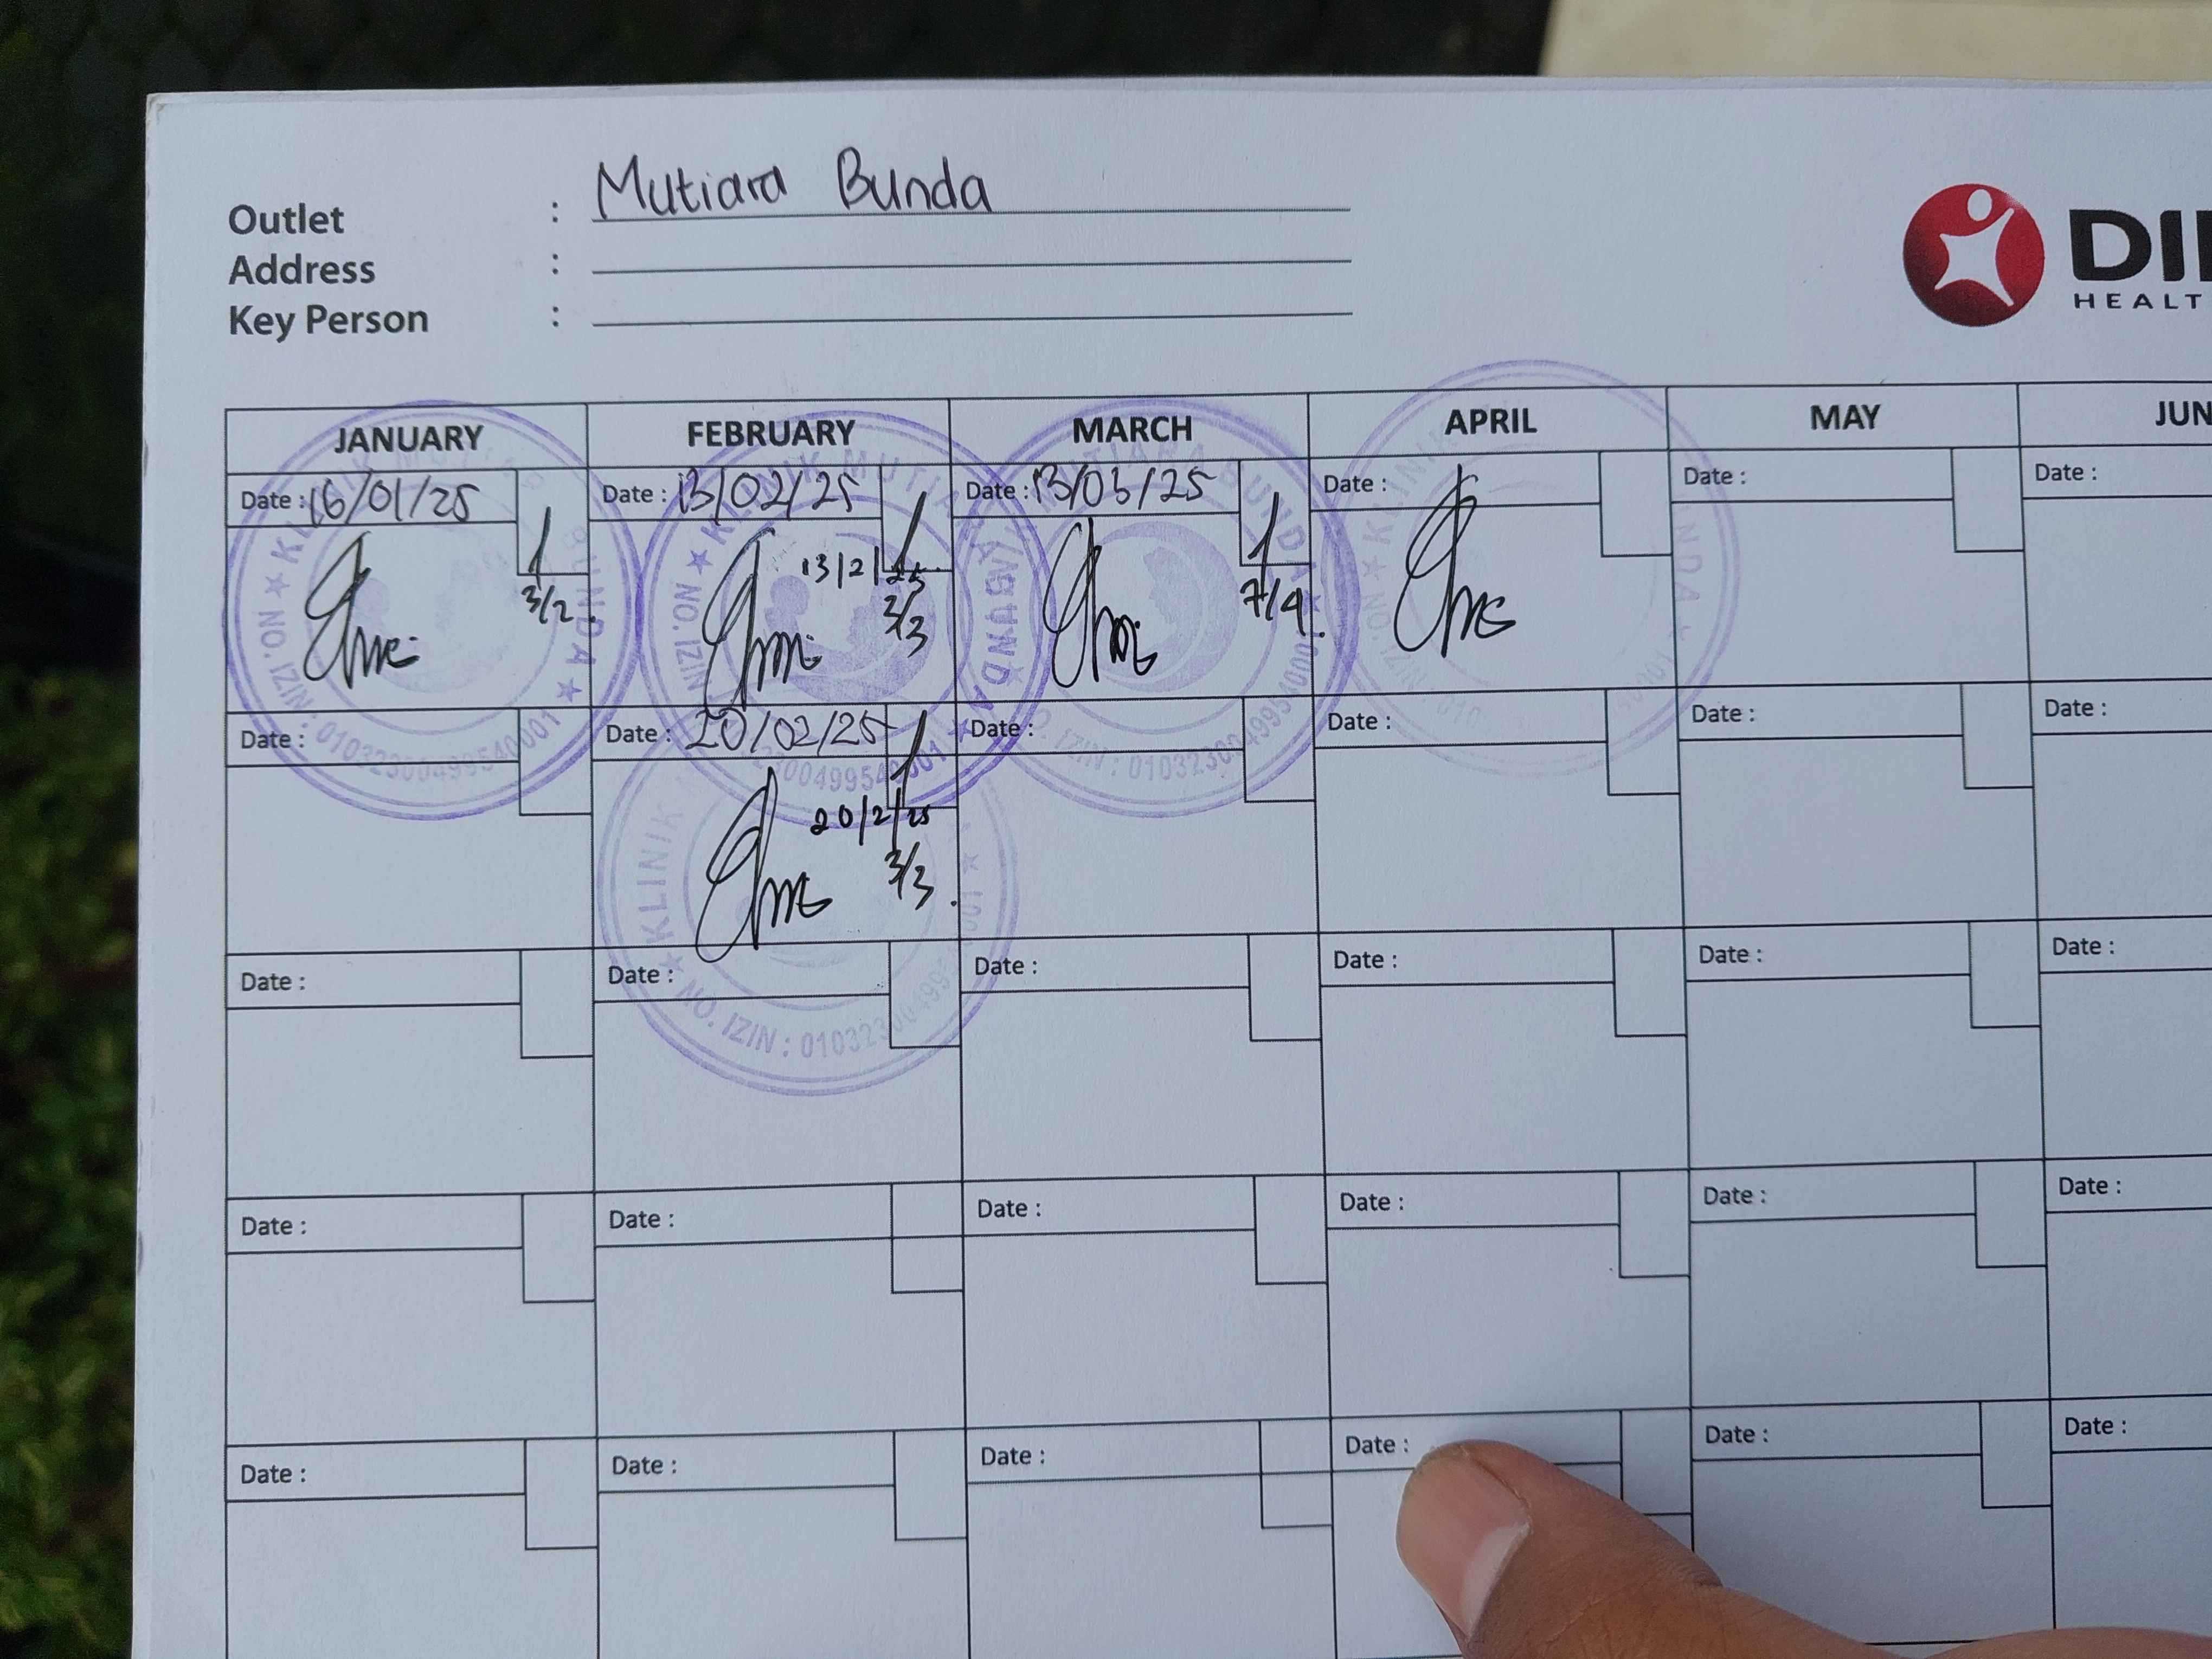 Outlet : Mutiara Bunda
Address :
Key Person :
DI
HEALT
JANUARY FEBRUARY MARCH APRIL MAY JUN
Date : 16/01/25 Date : 13/02/25 Date : 13/03/25 Date : Date : Date :
13/2/25
3/2. 3/3 7/4.
Date : Date : 20/02/25 Date : Date : Date : Date :
20/2/25
3/3.
Date : Date : Date : Date : Date : Date :
Date : Date : Date : Date : Date : Date :
Date : Date : Date : Date : Date : Date :
★ KLINIK MUTIARA BUNDA ★
NO. IZIN : 01032300499540001